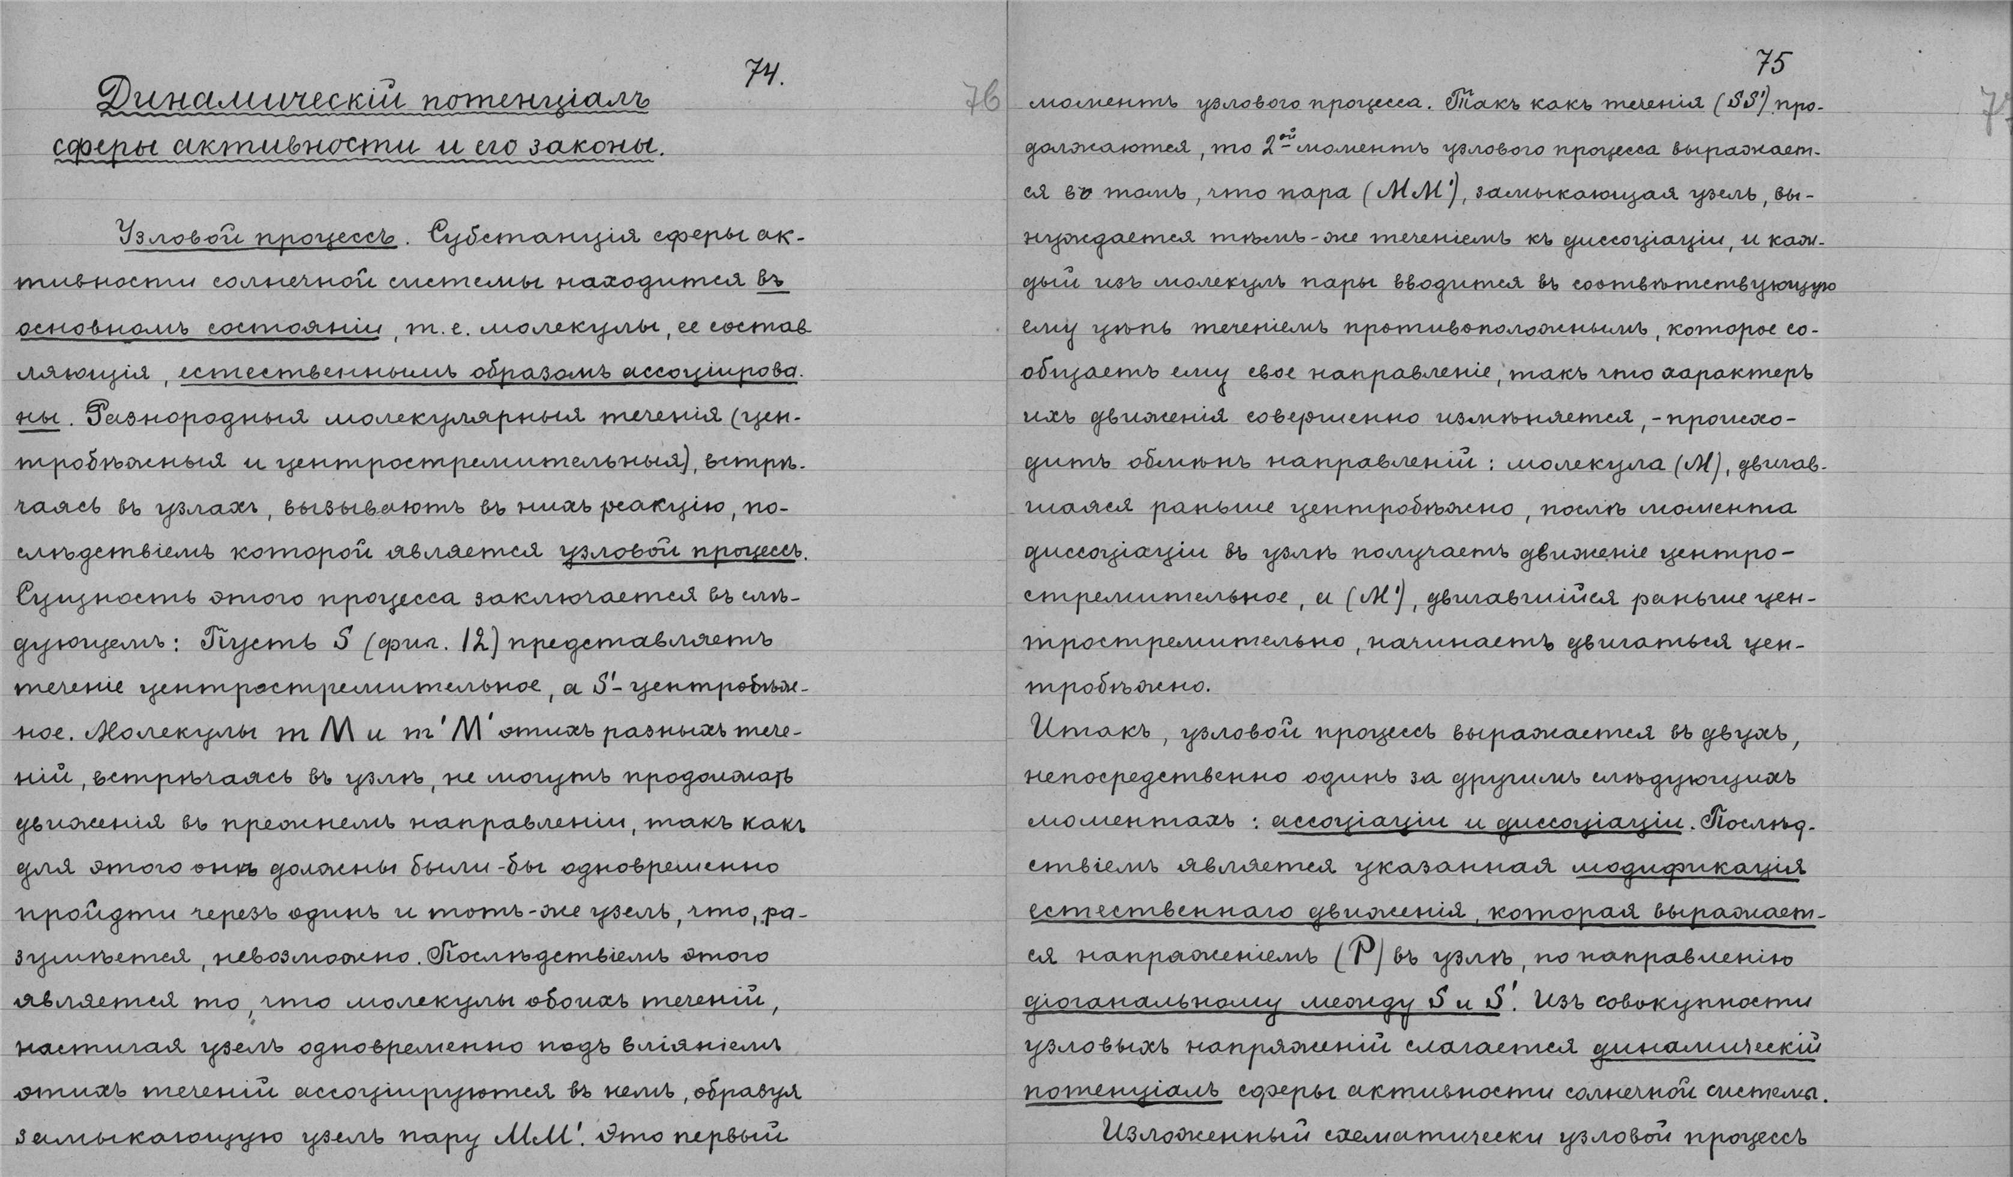 74.
Динамическій потенціалъ
сферы активности и его законы.
Узловой процессъ. Субстанція сферы ак-
тивности солнечной системы находится въ
основномъ состояніи, т. е. молекулы, ее состав
ляющія, естественнымъ образомъ ассоціирова-
ны. Разнородныя молекулярныя теченія (цен-
тробѣжныя и центростремительныя), встрѣ-
чаясь въ узлахъ, вызываютъ въ нихъ реакцію, по-
слѣдствіемъ которой является узловой процессъ.
Сущность этого процесса заключается въ слѣ-
дующемъ: Пусть S (фиг. 12) представляетъ
теченіе центростремительное, а S' - центробѣж-
ное. Молекулы m M и m' M' этихъ разныхъ тече-
ній, встрѣчаясь въ узлѣ, не могутъ продолжать
движенія въ прежнемъ направленіи, такъ какъ
для этого онѣ должны были-бы одновременно
пройдти черезъ одинъ и тотъ-же узелъ, что, ра-
зумѣется, невозможно. Послѣдствіемъ этого
является то, что молекулы обоихъ теченій,
настигая узелъ одновременно подъ вліяніемъ
этихъ теченій ассоціируются въ немъ, образуя
замыкающую узелъ пару MM'. Это первый
76
75
моментъ узлового процесса. Такъ какъ теченія (SS') про-
должаются, то 2ой моментъ узлового процесса выражает-
ся въ томъ, что пара (MM'), замыкающая узелъ, вы-
нуждается тѣмъ-же теченіемъ къ диссоціаціи, и каж-
дый изъ молекулъ пары вводится въ соотвѣтствующую
ему цѣпь теченіемъ противоположнымъ, которое со-
общаетъ ему свое направленіе, такъ что характеръ
ихъ движенія совершенно измѣняется, - происхо-
дитъ обмѣнъ направленій: молекула (M), двигав-
шаяся раньше центробѣжно, послѣ момента
диссоціаціи въ узлѣ получаетъ движеніе центро-
стремительное, а (M'), двигавшійся раньше цен-
тростремительно, начинаетъ двигаться цен-
тробѣжно.
Итакъ, узловой процессъ выражается въ двухъ,
непосредственно одинъ за другимъ слѣдующихъ
моментахъ: ассоціаціи и диссоціаціи. Послѣд-
ствіемъ является указанная модификація
естественнаго движенія, которая выражает-
ся напряженіемъ (P) въ узлѣ, по направленію
діоганальному между S и S'. Изъ совокупности
узловыхъ напряженій слагается динамическій
потенціалъ сферы активности солнечной системы.
Изложенный схематически узловой процессъ